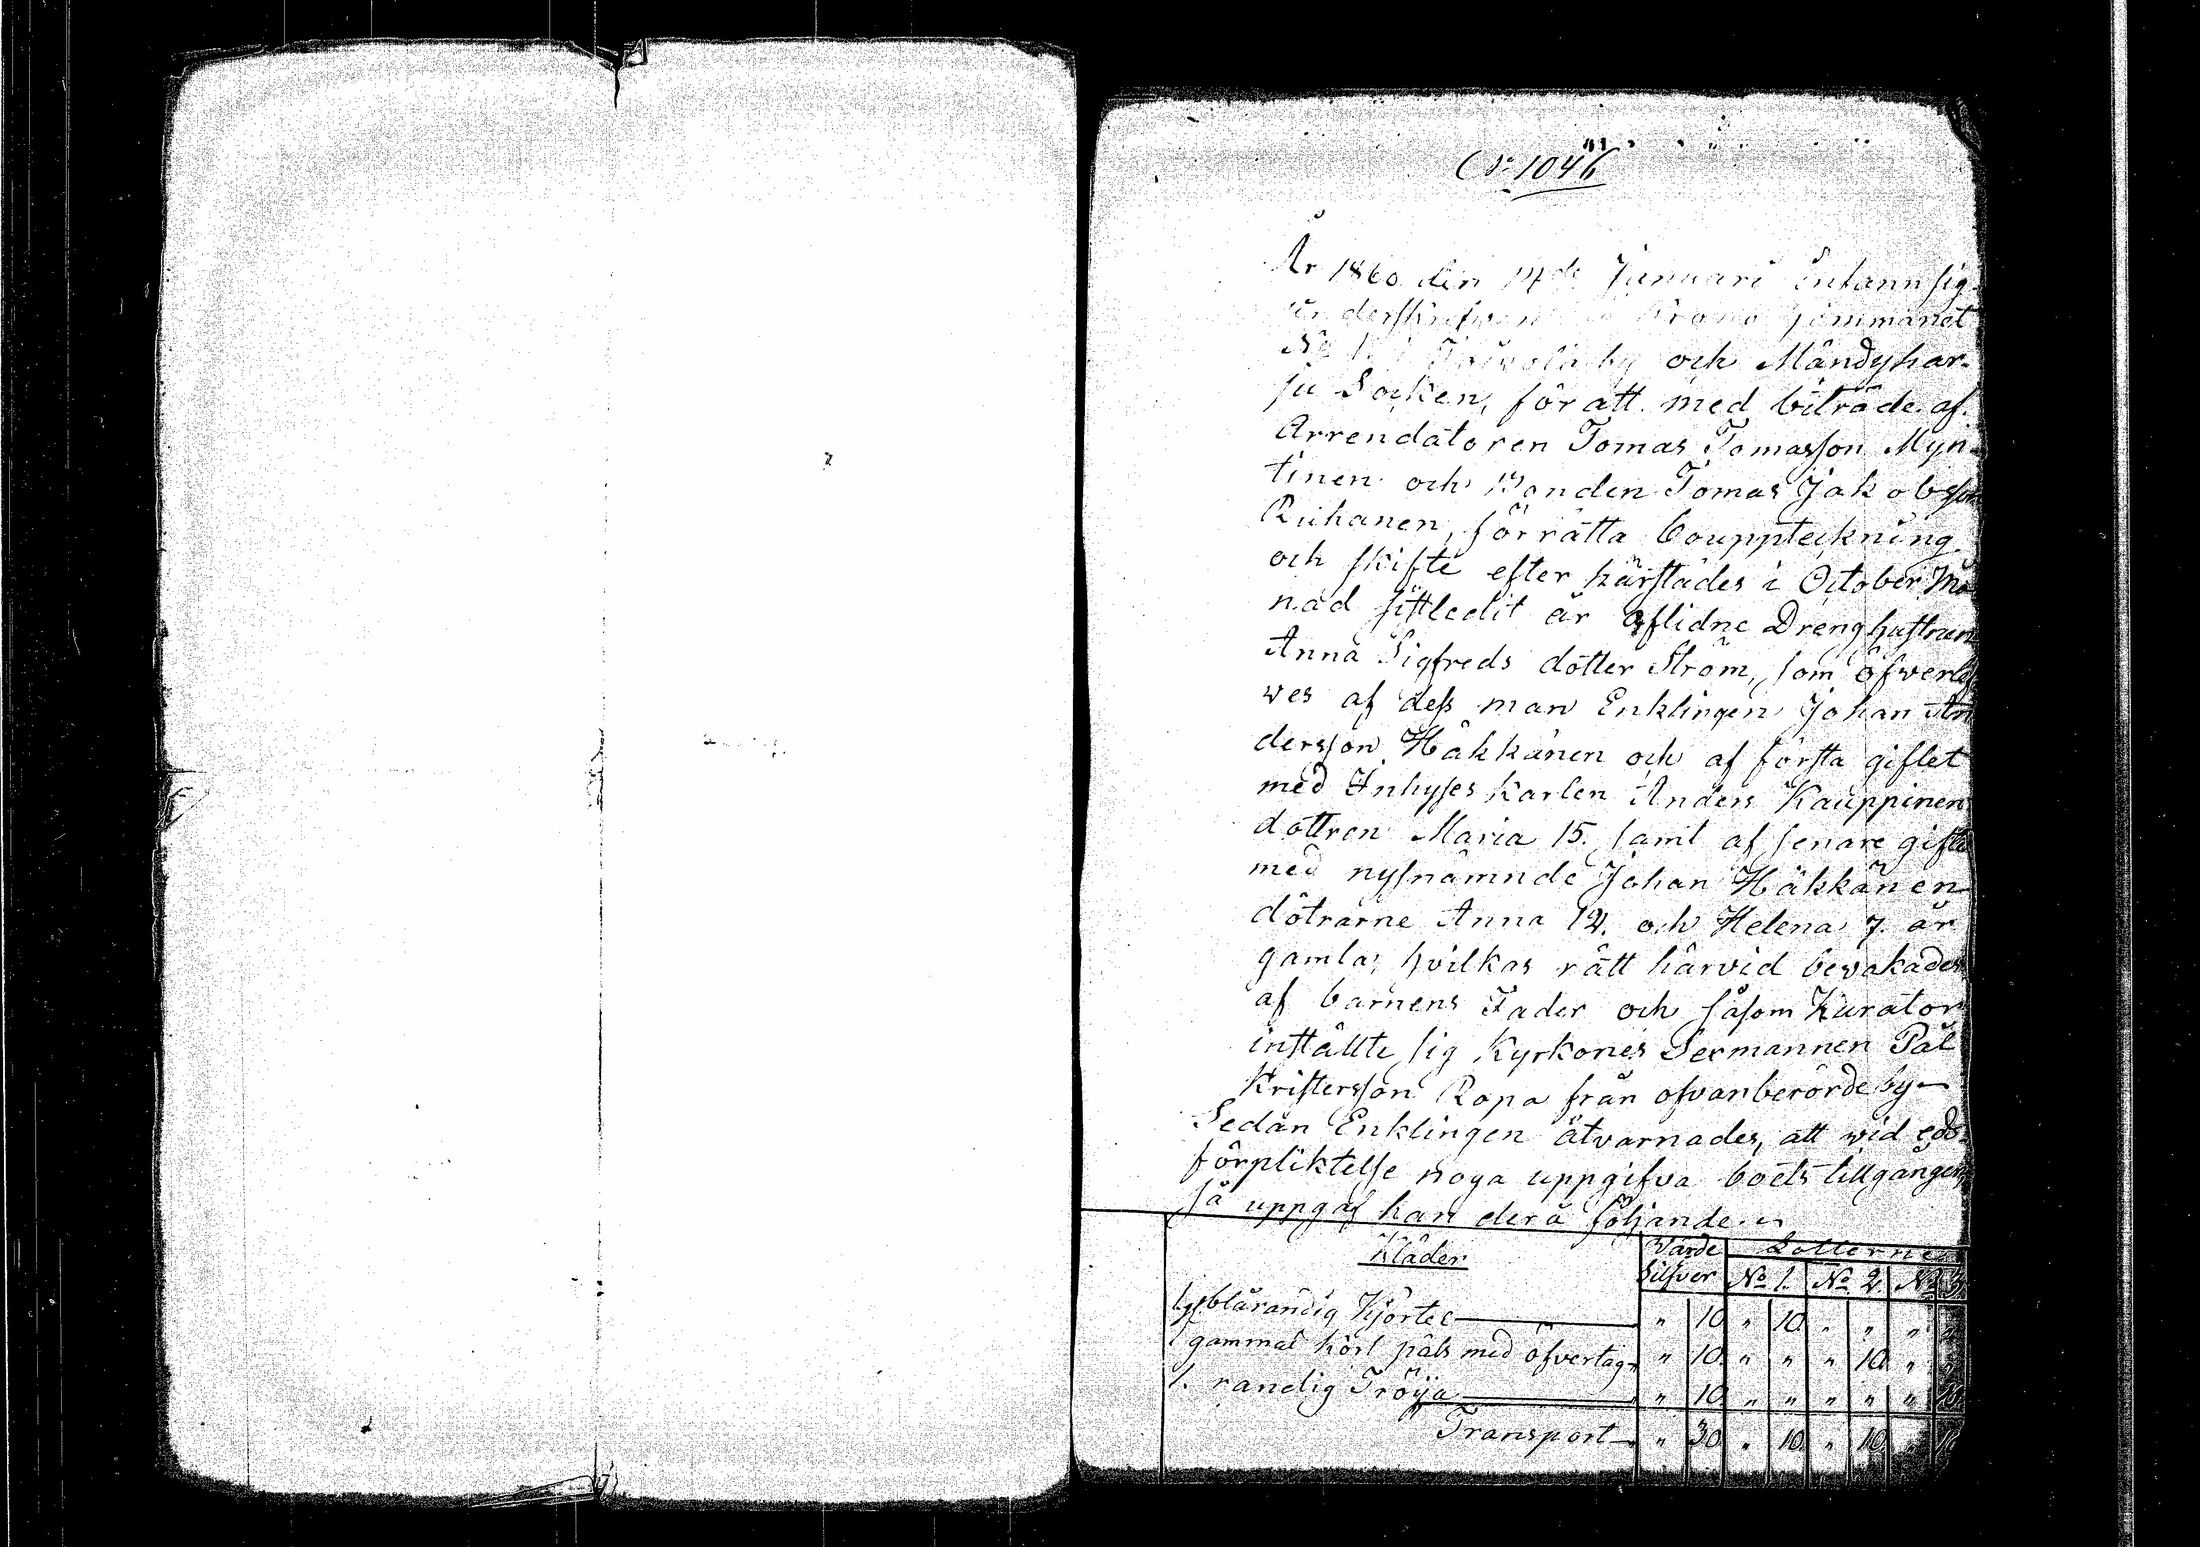 No 1046
År 1860 den 14de Januari infann sig
underskrifven Krono hemmanet
No 1. by och Mändyhar-
ju Socken, för att med biträde af
Arrendatoren Tomas Tomasson Myn-
tinen och Bonden Tomas Jakobsson
Ruhanen, förrätta bouppteckning
och skifte efter härstädes i October Må
nad sistledit år aflidne Dränghustrun
Anna Sigfreds dotter Ström, som öfverlef
ves af dess man Enklingen Johan An
dersson Häkkänen och af första giftet
med Inhyses karlen Anders Kauppinen
dottren Maria 15. samt af senare gifte
med nysnämnde Johan Häkkänen
dötrarne Anna 12. och Helena 7. år
gamla, hvilkas rätt härvid bevakades
af barnens Fader och såsom Kurator
inställte sig Kyrkones Sexmannen Pål
Kristersson Ropa från ofvanberörde by—
Sedan Enklingen åtvarnades, att vid eds-
förpliktelse noga uppgifva boets tillgångar,
så uppgaf han derå följande.
Kläder Värde Silfver Lotterne No 1. No 2. No 3.
1 blårandig Kjortel — " 10 " 10 " " "
1 gammal kort päls med öfvertag " 10 " " " 10 "
1. randig Tröija — " 10 " " " " " 10
Transport — " 30 " 10 " 10 " 10